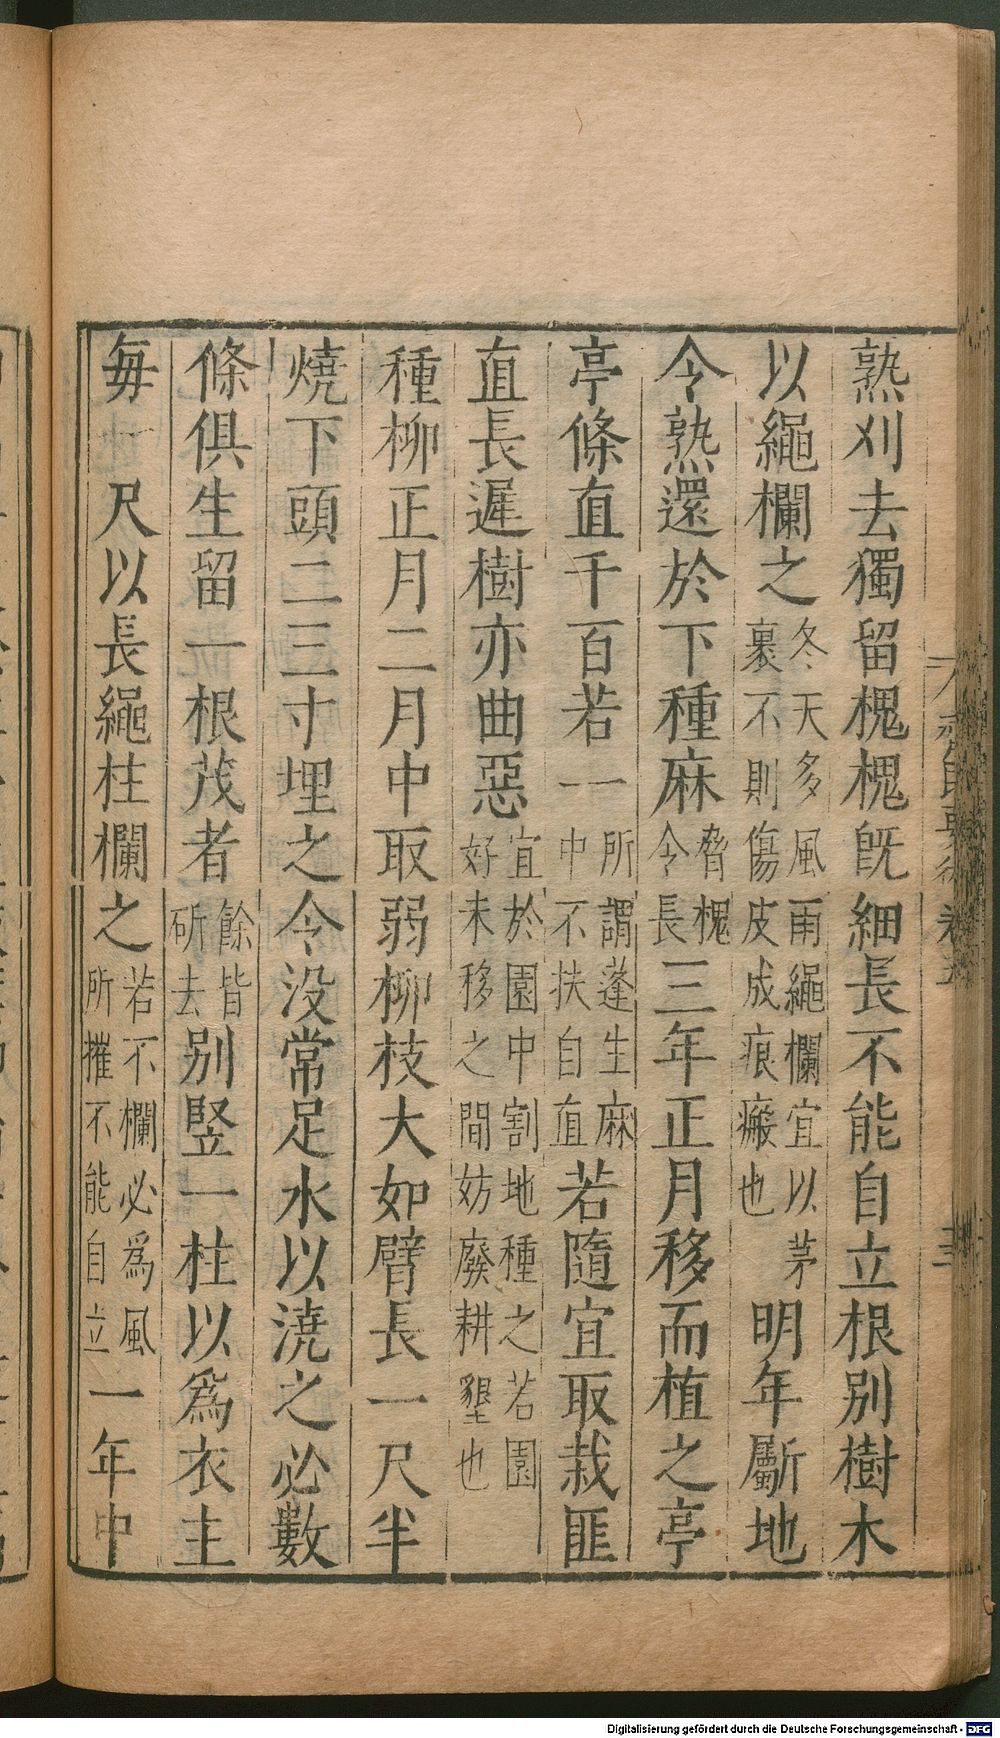 熟刈去獨留槐槐旣細長不能自立根別樹木
以繩欄之冬天多風雨繩欄宜以茅裹不則傷皮成痕瘢也明年斸地
令熟還於下種麻脅槐令長三年正月移而植之亭
亭條直千百若一所謂蓬生麻中不扶自直若隨宜取栽匪
直長遲樹亦曲惡宜於園中割地種之若園好未移之間妨廢耕墾也
種柳正月二月中取弱柳枝大如臂長一尺半
燒下頭二三寸埋之令没常足水以澆之必數
條俱生留一根茂者餘皆斫去别竪一柱以爲衣主
每一尺以長繩柱欄之若不欄必爲風所摧不能自立一年中
Digitalisierung gefördert durch die Deutsche Forschungsgemeinschaft - DFG